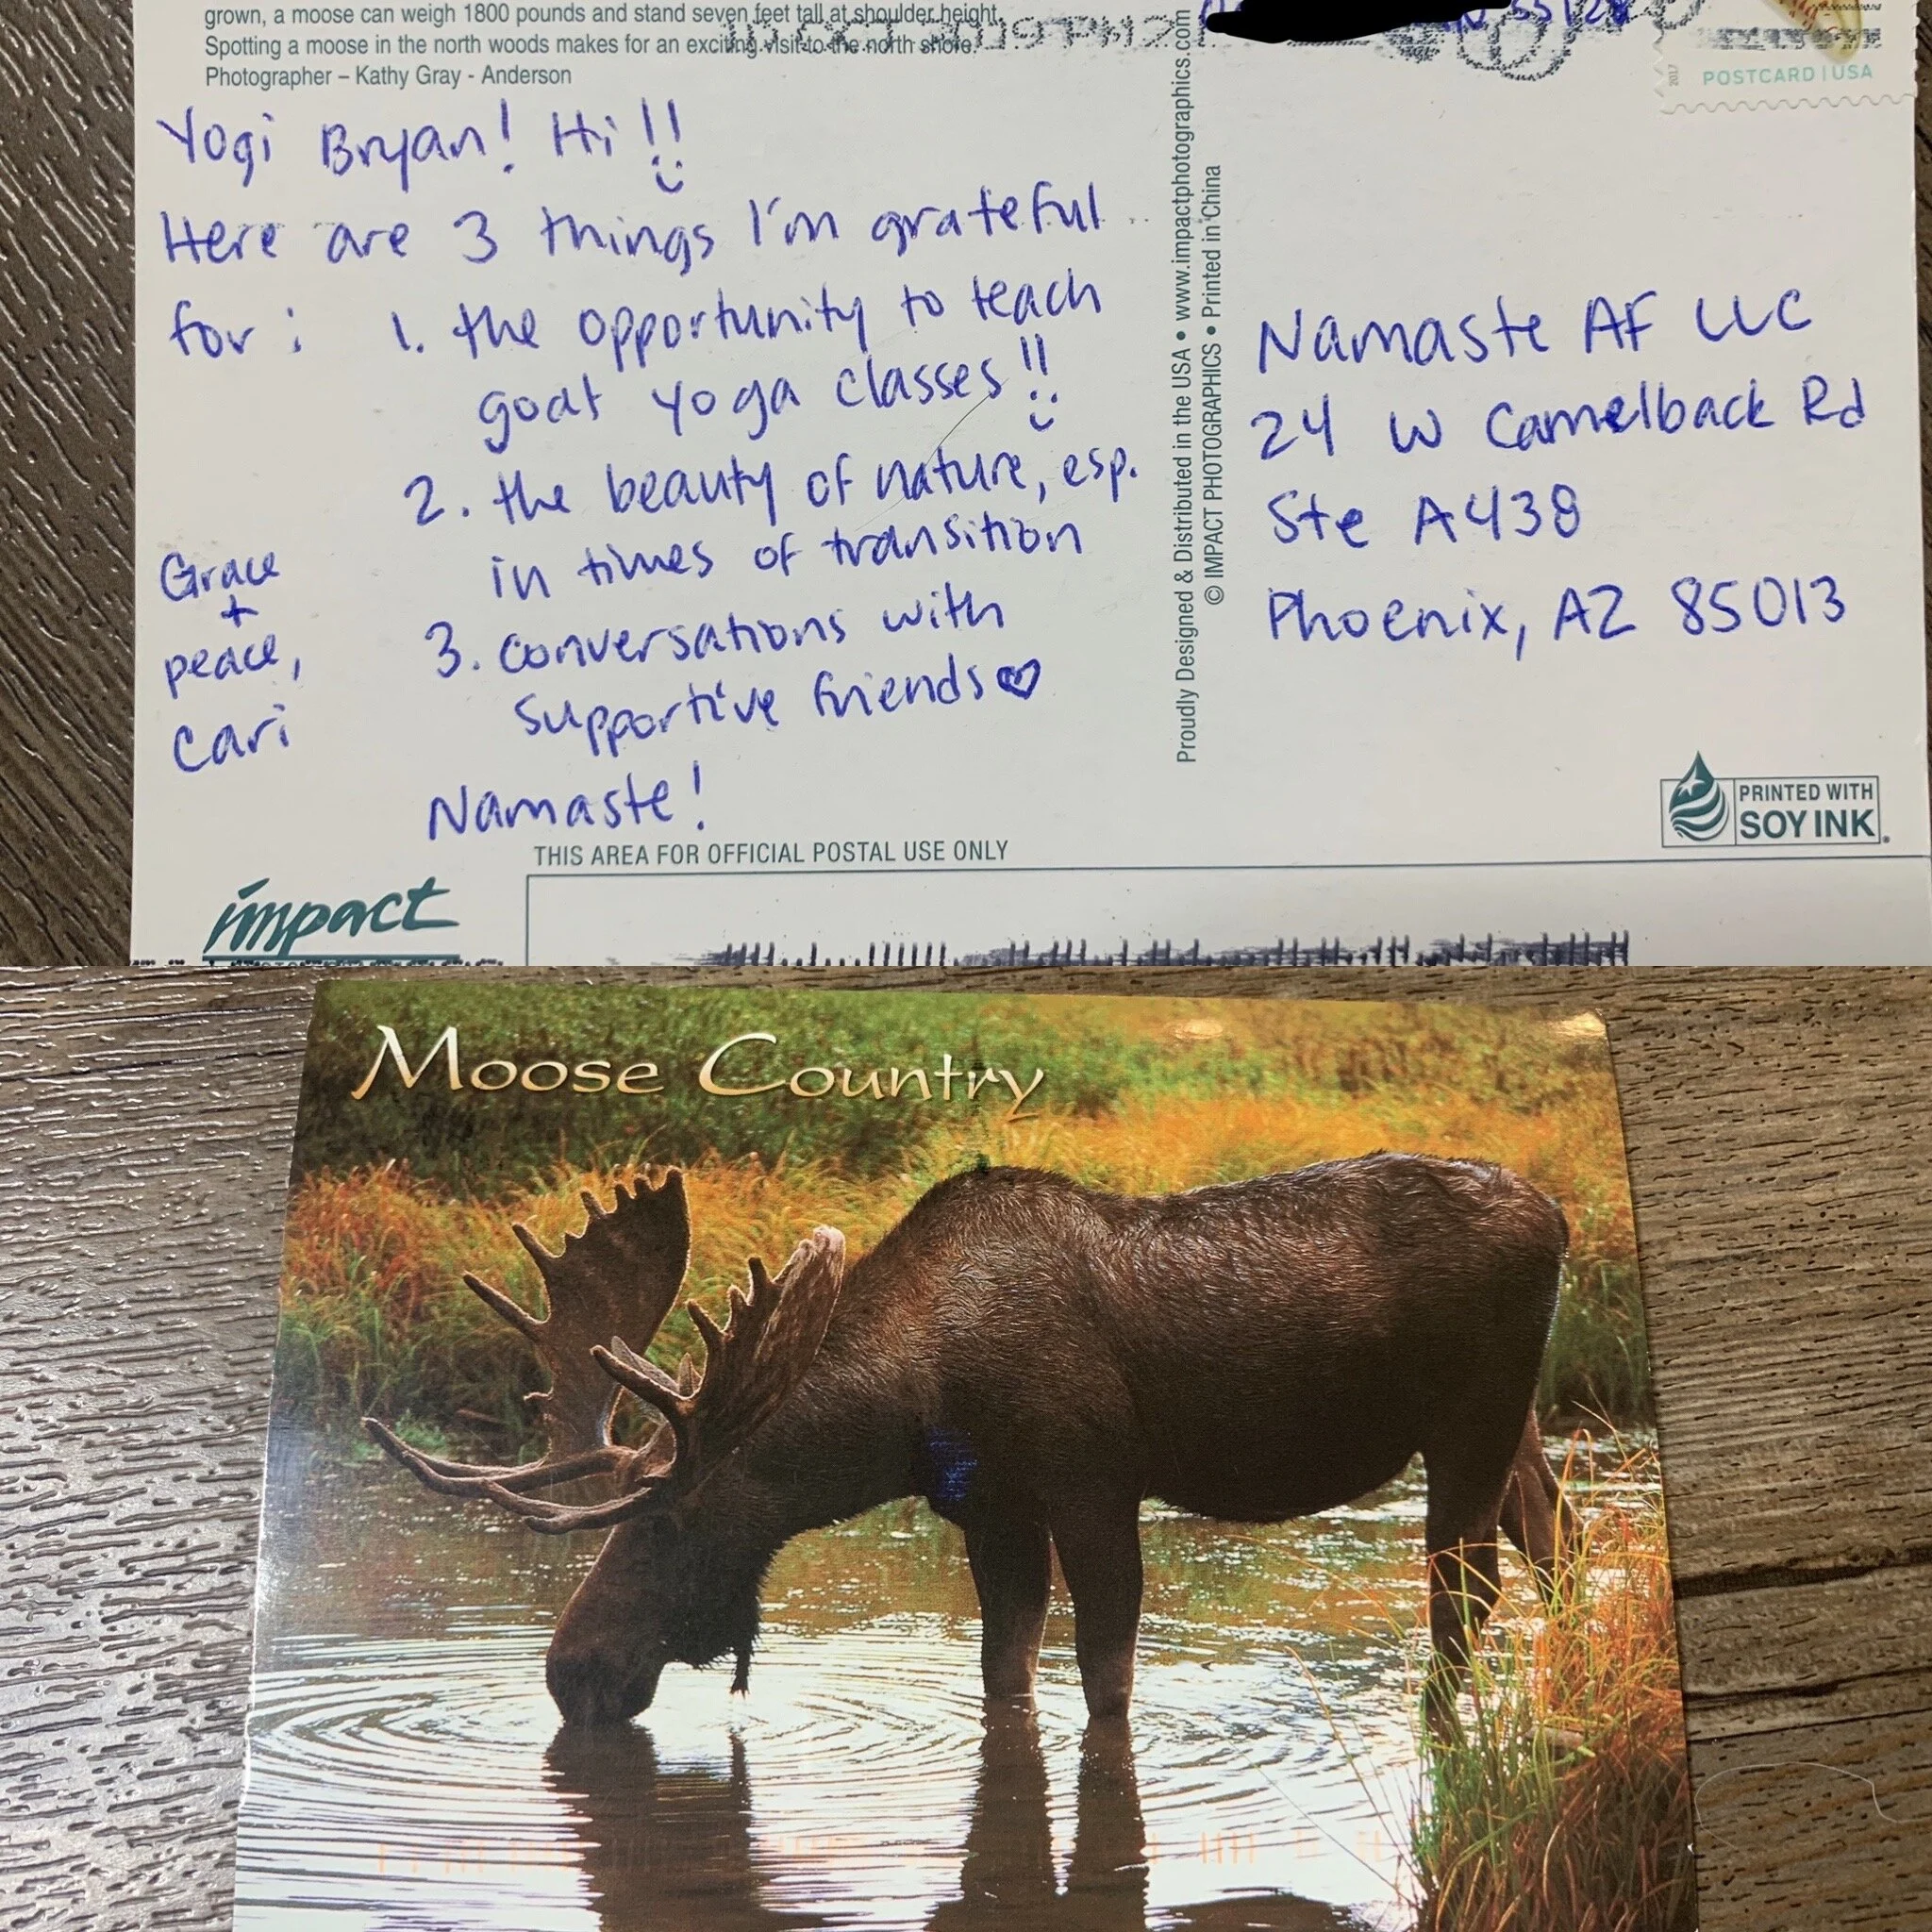 grown, a moose can weigh 1800 pounds and stand seven feet tall at shoulder height.
Spotting a moose in the north woods makes for an exciting visit to the north shore.
Photographer – Kathy Gray - Anderson
2019 PM 2
Yogi Bryan! Hi!!
Here are 3 things I'm grateful
for: 1. the opportunity to teach
goat yoga classes!!
2. the beauty of nature, esp.
in times of transition
3. conversations with
supportive friends
Namaste!
Grace
+
peace,
Cari
Proudly Designed & Distributed in the USA • www.impactphotographics.com
© IMPACT PHOTOGRAPHICS • Printed in China
2017
POSTCARD | USA
Namaste AF LLC
24 W Camelback Rd
Ste A438
Phoenix, AZ 85013
PRINTED WITH
SOY INK
THIS AREA FOR OFFICIAL POSTAL USE ONLY
impact
Moose Country